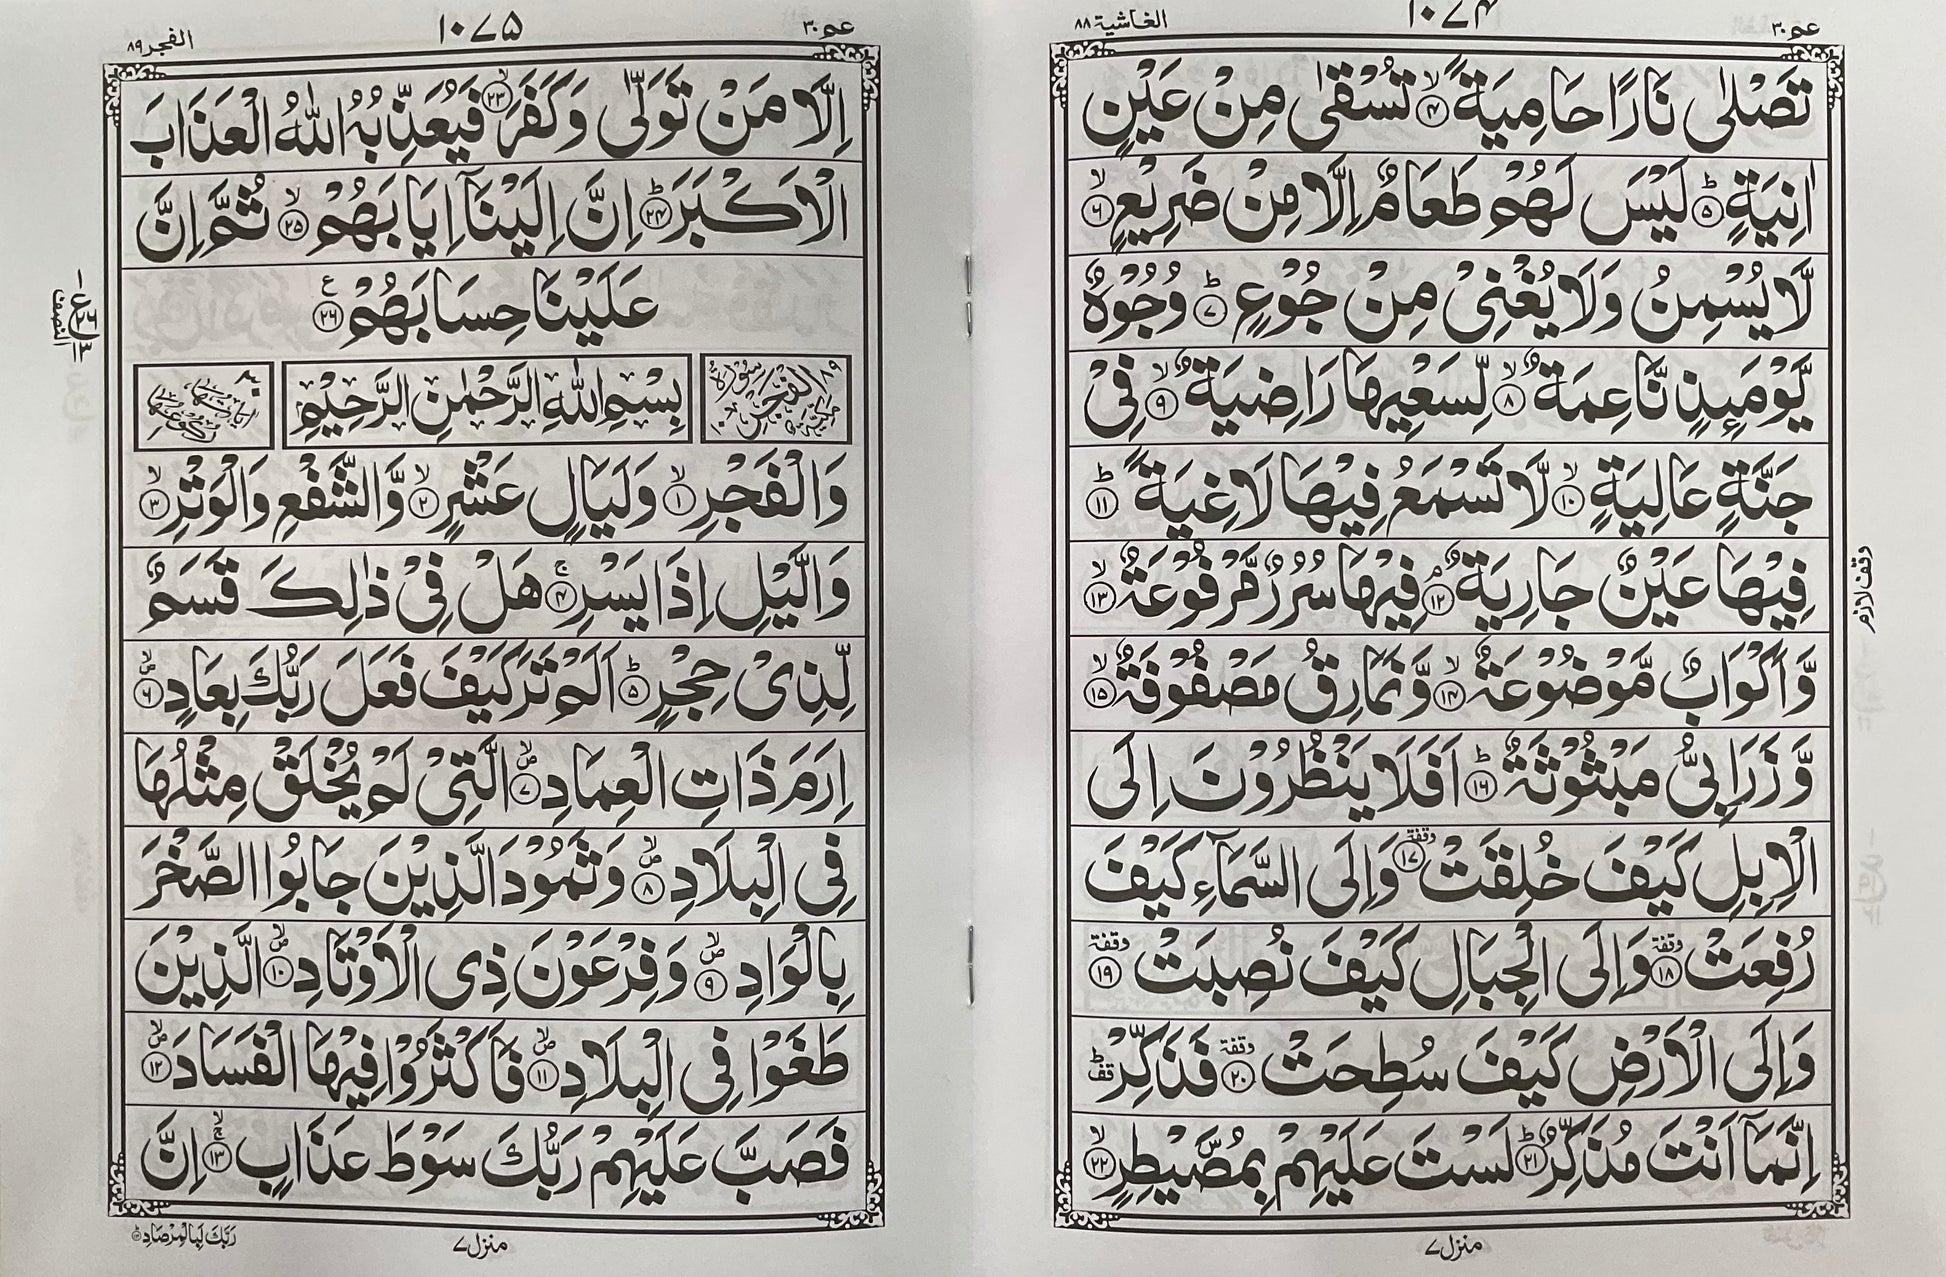 عم ۳۰
۱۰۷۴
الغاشية ۸۸
تَصْلٰى نَارًا حَامِيَةً ۙ‏﴿۴﴾ تُسْقٰى مِنْ عَيْنٍ
اٰنِيَةٍ ؕ‏﴿۵﴾ لَيْسَ لَهُمْ طَعَامٌ اِلَّا مِنْ ضَرِيْعٍ ۙ‏﴿۶﴾
لَّا يُسْمِنُ وَلَا يُغْنِىْ مِنْ جُوْعٍ ؕ‏﴿۷﴾ وُجُوْهٌ
يَّوْمَئِذٍ نَّاعِمَةٌ ۙ‏﴿۸﴾ لِّسَعْيِهَا رَاضِيَةٌ ۙ‏﴿۹﴾ فِىْ
جَنَّةٍ عَالِيَةٍ ۙ‏﴿۱۰﴾ لَّا تَسْمَعُ فِيْهَا لَاغِيَةً ؕ‏﴿۱۱﴾
فِيْهَا عَيْنٌ جَارِيَةٌ ۘ‏﴿۱۲﴾ فِيْهَا سُرُرٌ مَّرْفُوْعَةٌ ۙ‏﴿۱۳﴾
وقف لازم
وَّاَكْوَابٌ مَّوْضُوْعَةٌ ۙ‏﴿۱۴﴾ وَّنَمَارِقُ مَصْفُوْفَةٌ ۙ‏﴿۱۵﴾
وَّزَرَابِىُّ مَبْثُوْثَةٌ ؕ‏﴿۱۶﴾ اَفَلَا يَنْظُرُوْنَ اِلَى
الْاِبِلِ كَيْفَ خُلِقَتْ وقفة ﴿۱۷﴾ وَاِلَى السَّمَآءِ كَيْفَ
رُفِعَتْ وقفة ﴿۱۸﴾ وَاِلَى الْجِبَالِ كَيْفَ نُصِبَتْ وقفة ﴿۱۹﴾
وَاِلَى الْاَرْضِ كَيْفَ سُطِحَتْ وقفة ﴿۲۰﴾ فَذَكِّرْ ؕ قف
اِنَّمَآ اَنْتَ مُذَكِّرٌ ؕ‏﴿۲۱﴾ لَسْتَ عَلَيْهِمْ بِمُصَۜيْطِرٍ ۙ‏﴿۲۲﴾
منزل ۷
عم ۳۰
۱۰۷۵
الفجر ۸۹
اِلَّا مَنْ تَوَلّٰى وَكَفَرَ ۙ‏﴿۲۳﴾ فَيُعَذِّبُهُ اللّٰهُ الْعَذَابَ
الْاَكْبَرَ ؕ‏﴿۲۴﴾ اِنَّ اِلَيْنَاۤ اِيَابَهُمْ ۙ‏﴿۲۵﴾ ثُمَّ اِنَّ
عَلَيْنَا حِسَابَهُمْ ع ﴿۲۶﴾
النصف
سورة الفجر مكية ۸۹ ۱۰
بِسْمِ اللّٰهِ الرَّحْمٰنِ الرَّحِيْمِ
اٰيَاتُهَا ۳۰ رُكُوْعُهَا ۱
وَالْفَجْرِ ۙ‏﴿۱﴾ وَلَيَالٍ عَشْرٍ ۙ‏﴿۲﴾ وَّالشَّفْعِ وَالْوَتْرِ ۙ‏﴿۳﴾
وَالَّيْلِ اِذَا يَسْرِ ۚ‏﴿۴﴾ هَلْ فِىْ ذٰلِكَ قَسَمٌ
لِّذِىْ حِجْرٍ ؕ‏﴿۵﴾ اَلَمْ تَرَ كَيْفَ فَعَلَ رَبُّكَ بِعَادٍ ۙ ص ﴿۶﴾
اِرَمَ ذَاتِ الْعِمَادِ ۙ ص ﴿۷﴾ الَّتِىْ لَمْ يُخْلَقْ مِثْلُهَا
فِى الْبِلَادِ ۙ ص ﴿۸﴾ وَثَمُوْدَ الَّذِيْنَ جَابُوا الصَّخْرَ
بِالْوَادِ ۙ ص ﴿۹﴾ وَفِرْعَوْنَ ذِى الْاَوْتَادِ ۙ ص ﴿۱۰﴾ الَّذِيْنَ
طَغَوْا فِى الْبِلَادِ ۙ ص ﴿۱۱﴾ فَاَكْثَرُوْا فِيْهَا الْفَسَادَ ۙ ص ﴿۱۲﴾
فَصَبَّ عَلَيْهِمْ رَبُّكَ سَوْطَ عَذَابٍ ۙۚ‏﴿۱۳﴾ اِنَّ
منزل ۷
رَبَّكَ لَبِالْمِرْصَادِ ؕ‏﴿۱۴﴾